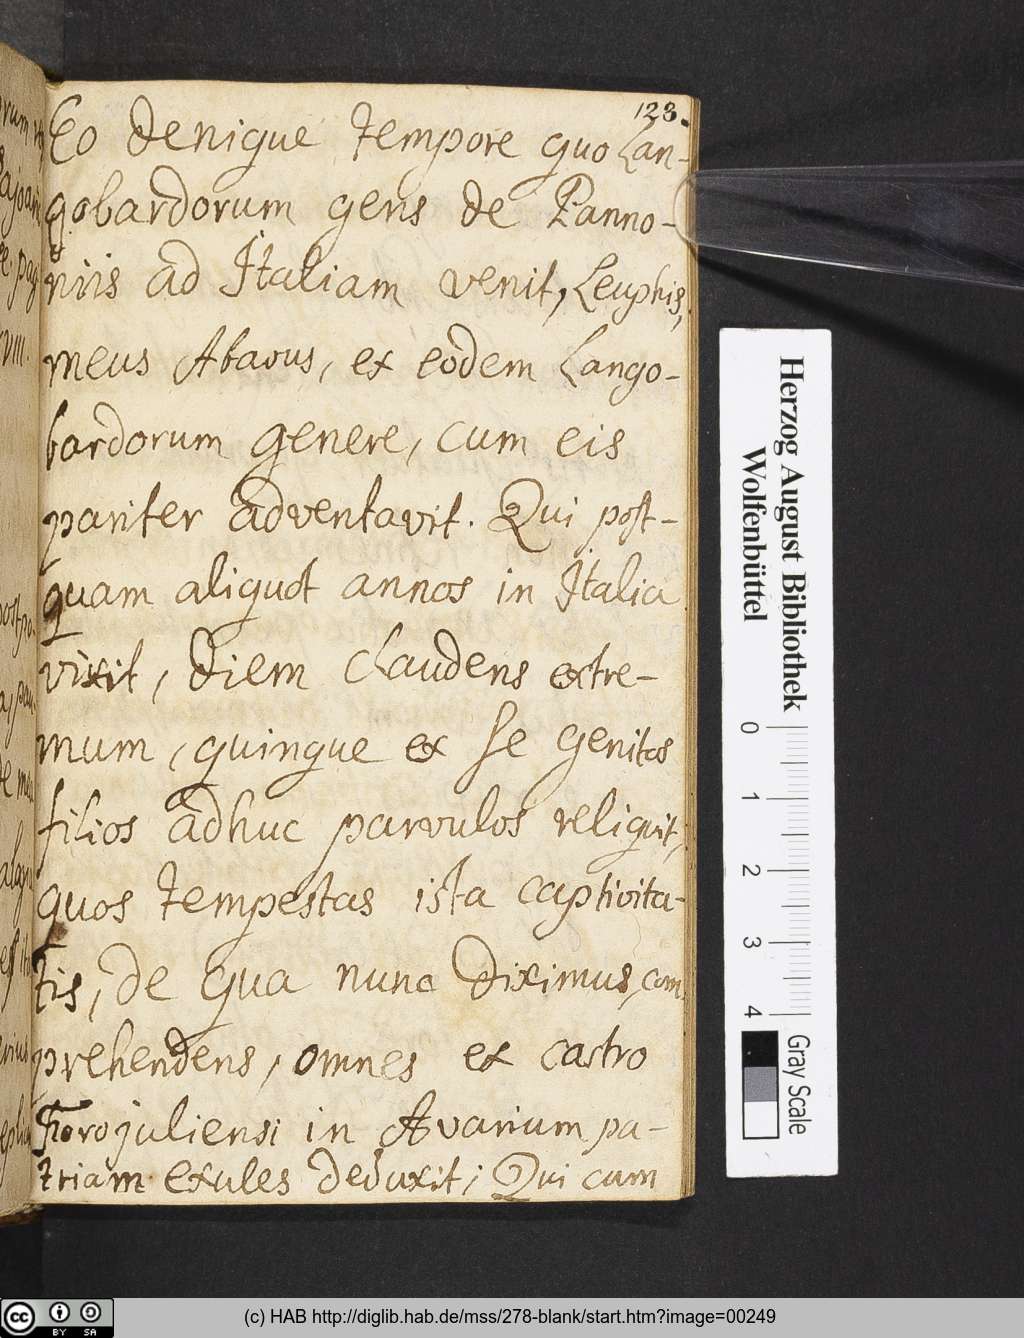 123.
Eo denique tempore quo Lan-
gobardorum gens de Panno-
niis ad Italiam venit, Leuphis,
meus Abavus, ex eodem Lango-
bardorum genere, cum eis
pariter adventavit. Qui post-
quam aliquot annos in Italia
vixit, diem claudens extre-
mum, quinque ex se genitos
filios adhuc parvulos reliquit,
quos tempestas ista captivita-
tis, de qua nunc diximus, com
prehendens, omnes ex castro
Forojuliensi in Avarium pa-
triam exules deduxit; Qui cum
Herzog August Bibliothek
Wolfenbüttel
0 1 2 3 4
Gray Scale
cc BY SA
(c) HAB http://diglib.hab.de/mss/278-blank/start.htm?image=00249